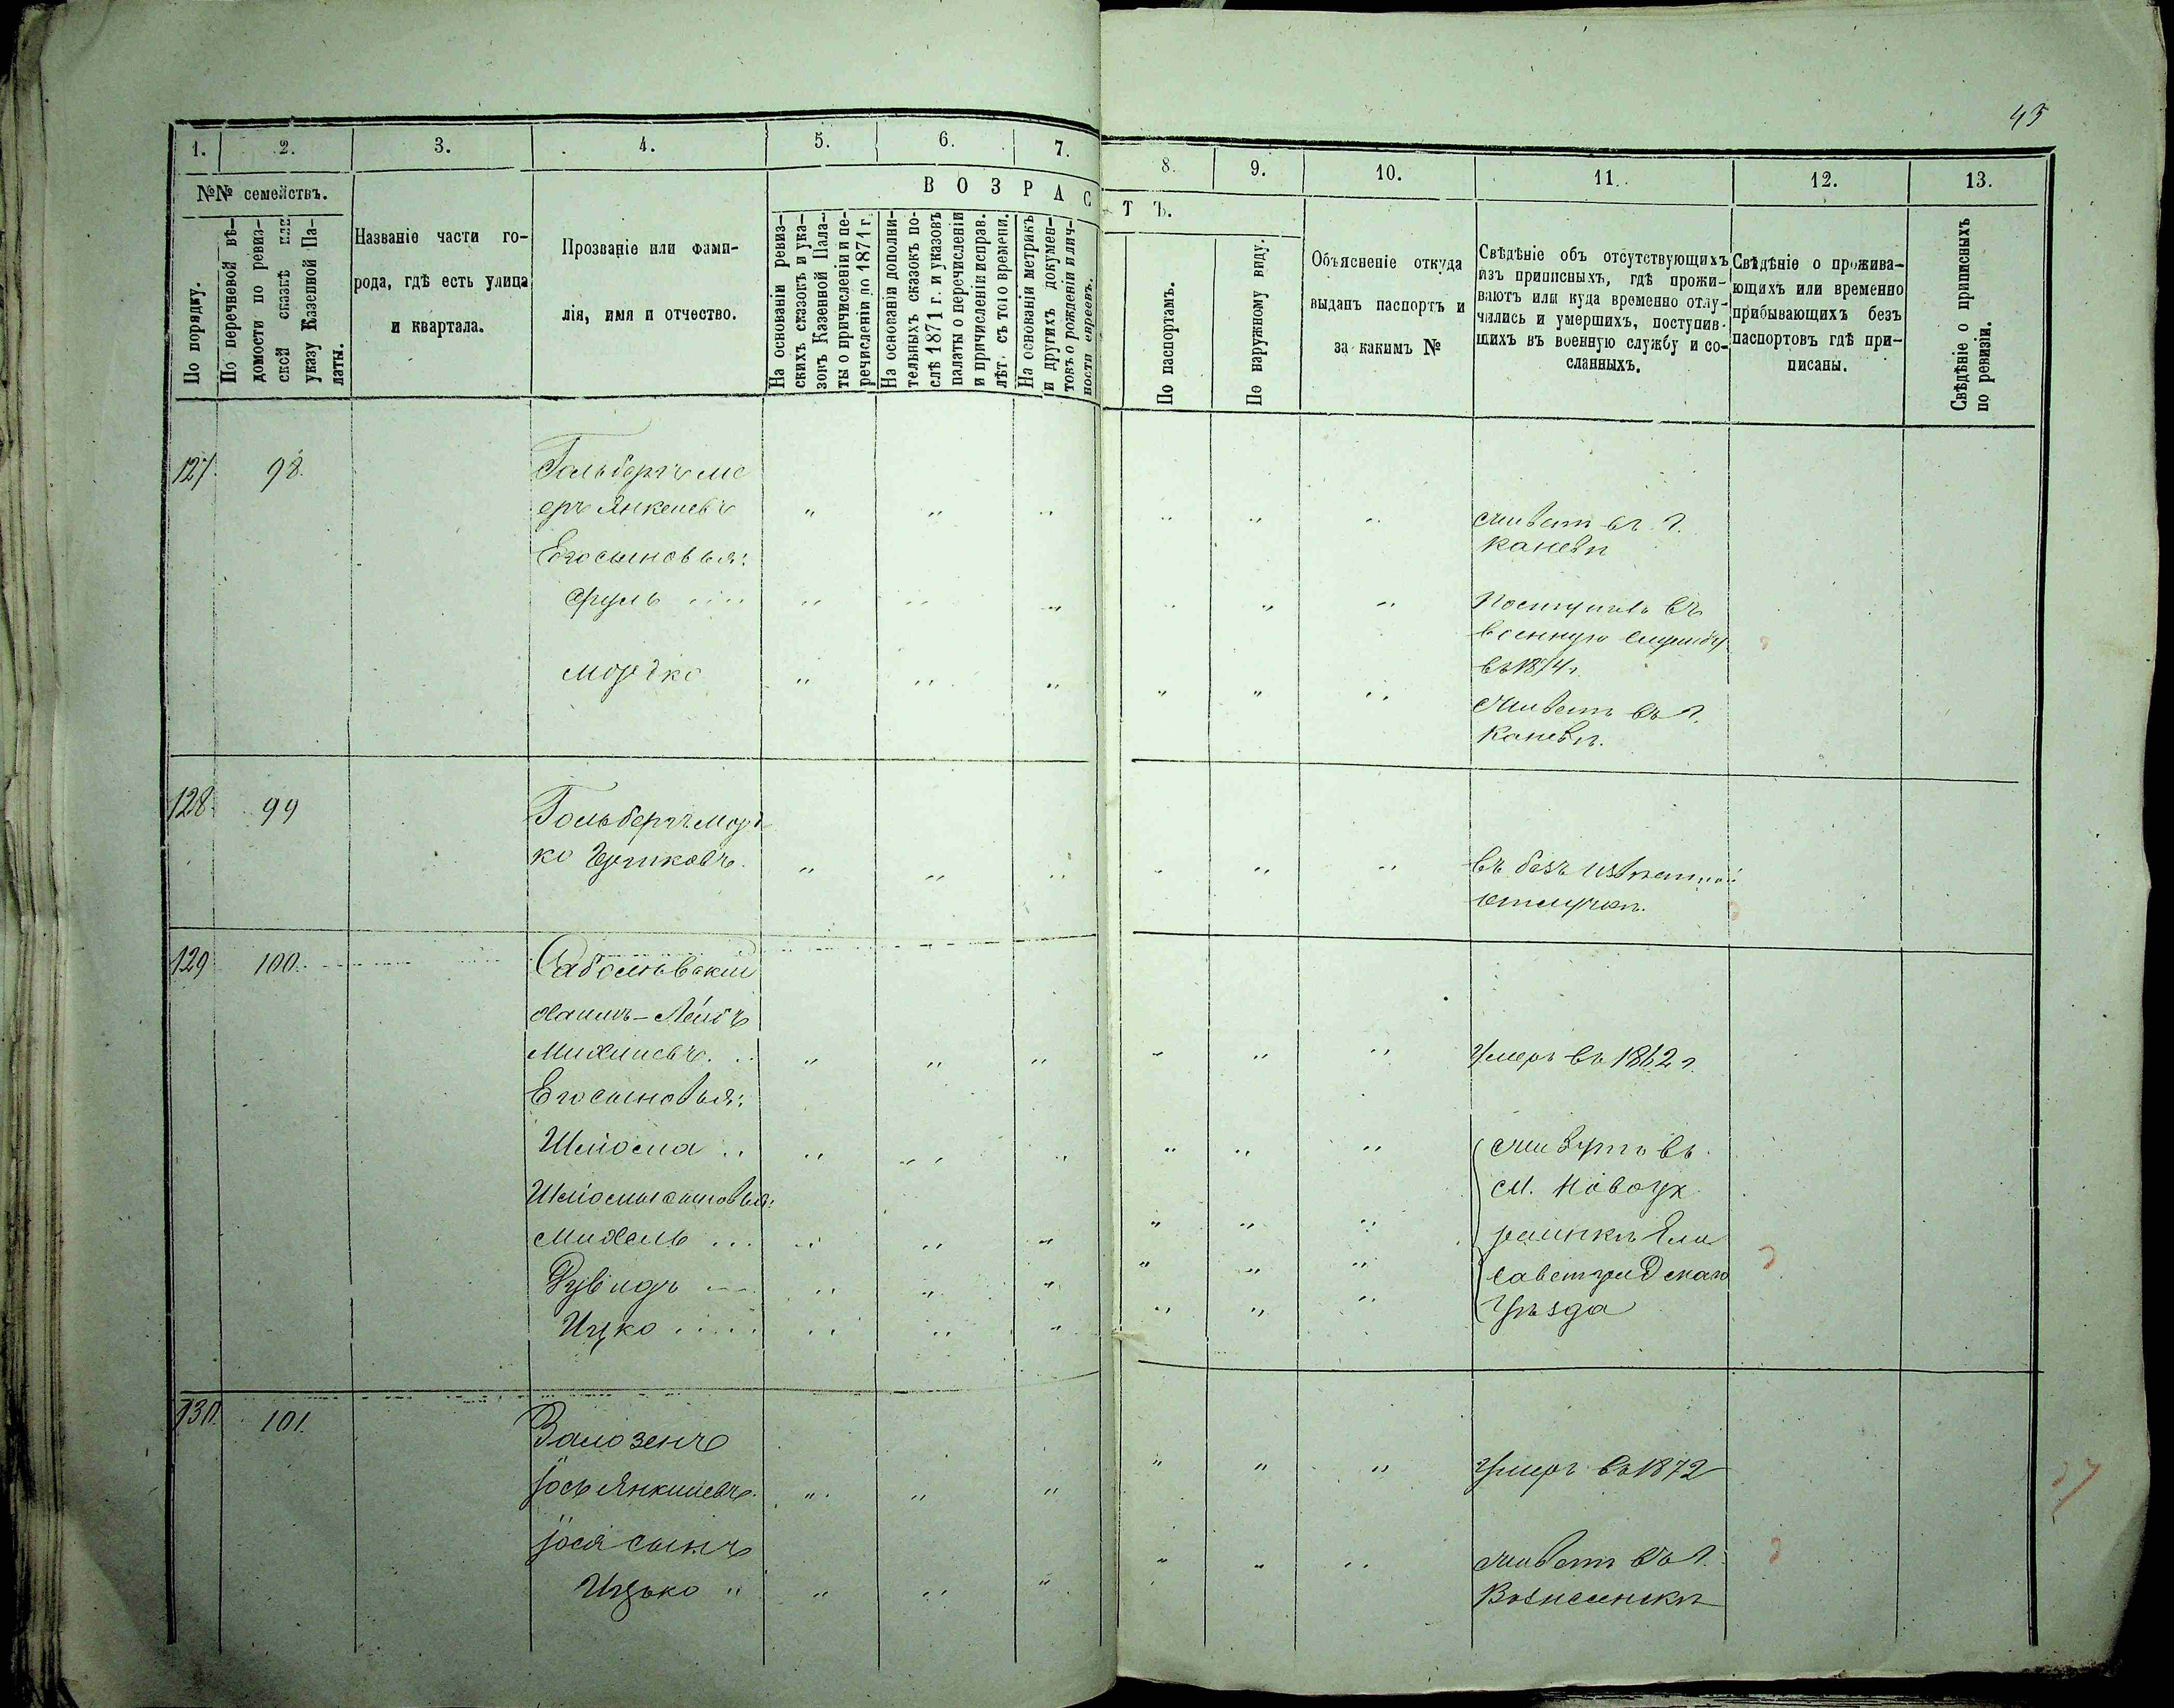 45
1. 2. 3. 4. 5. 6. 7. 8. 9. 10. 11. 12. 13.
№№ семействъ.
В О З Р А С Т Ъ.
По порядку.
По перечневой вѣ-
домости по ревиз-
ской сказкѣ или
указу Казенной Па-
латы.
Названіе части го-
рода, гдѣ есть улица
и квартала.
Прозваніе или фами-
лія, имя и отчество.
На основаніи ревиз-
скихъ сказокъ и ука-
зовъ Казенной Пала-
ты о причисленіи и пе-
речисленіи по 1871 г.
На основаніи дополни-
тельныхъ сказокъ по-
слѣ 1871 г. и указовъ
палаты о перечисленіи
и причисленіи исправ.
лѣт. съ того времени.
На основаніи метрикъ
и другихъ докумен-
товъ о рожденіи и лич-
ности евреевъ.
По паспортамъ.
По наружному виду.
Объясненіе откуда
выданъ паспортъ и
за какимъ №
Свѣдѣніе объ отсутствующихъ
изъ приписныхъ, гдѣ прожи-
ваютъ или куда временно отлу-
чились и умершихъ, поступив-
шихъ въ военную службу и со-
сланныхъ.
Свѣдѣніе о прожива-
ющихъ или временно
прибывающихъ безъ
паспортовъ гдѣ при-
писаны.
Свѣдѣніе о приписныхъ
по ревизіи.
127. 98. Гольбергъ Ме
еръ Янкелевъ " " " " " " живетъ въ г.
Каневѣ
Его сыновья:
Сруль " " " " " " Поступилъ въ
военную службу
въ 1874 г.
Мордко " " " " " " живетъ въ г.
Каневѣ.
128. 99 Гольбергъ Морд
ко Ицковъ. " " " " " " въ безъизвѣстной
отлучкѣ.
129 100.
Хаимъ-Лейбъ
Михелевъ. " " " " " " Умеръ въ 1862 г.
Его сыновья:
Шліома " " " " " " живутъ въ
Шліомы сыновья: м. Новоук
Михель " " " " " " раинкѣ Ели
Рувинъ " " " " " " саветградскаго
Ицко " " " " " " уѣзда
130. 101. Залозенъ
Іось Янкелевъ. " " " " " " Умеръ въ 1872
Іося сынъ
Ицько " " " " " " живетъ въ г.
Вознесенскѣ